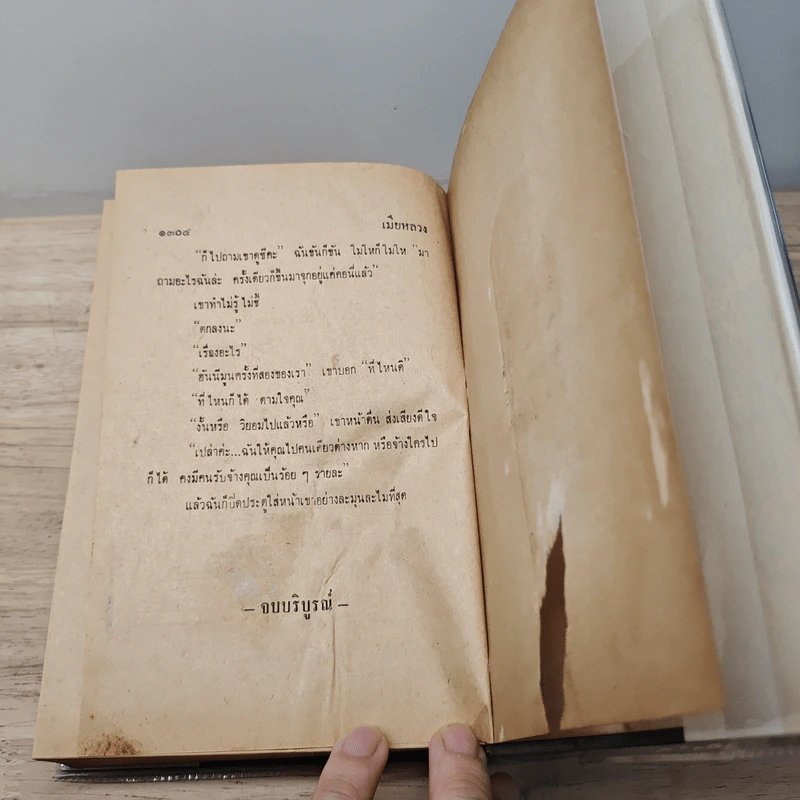 ๑๓๐๔ เมียหลวง
“ก็ไปถามเขาดูซีคะ” ฉันขันก็ขัน โมโหก็โมโห “มา
ถามอะไรฉันล่ะ ครั้งเดียวก็ขึ้นมาจุกอยู่แค่คอนี่แล้ว”
เขาทำไม่รู้ไม่ชี้
“ตกลงนะ”
“เรื่องอะไร”
“ฮันนีมูนครั้งที่สองของเรา” เขาบอก “ที่ไหนดี”
“ที่ไหนก็ได้ ตามใจคุณ”
“งั้นหรือ วิยอมไปแล้วหรือ” เขาหน้าตื่น ส่งเสียงดีใจ
“เปล่าค่ะ...ฉันให้คุณไปคนเดียวต่างหาก หรือจ้างใครไป
ก็ได้ คงมีคนรับจ้างคุณเป็นร้อย ๆ รายละ”
แล้วฉันก็ปิดประตูใส่หน้าเขาอย่างละมุนละไมที่สุด
– จบบริบูรณ์ –